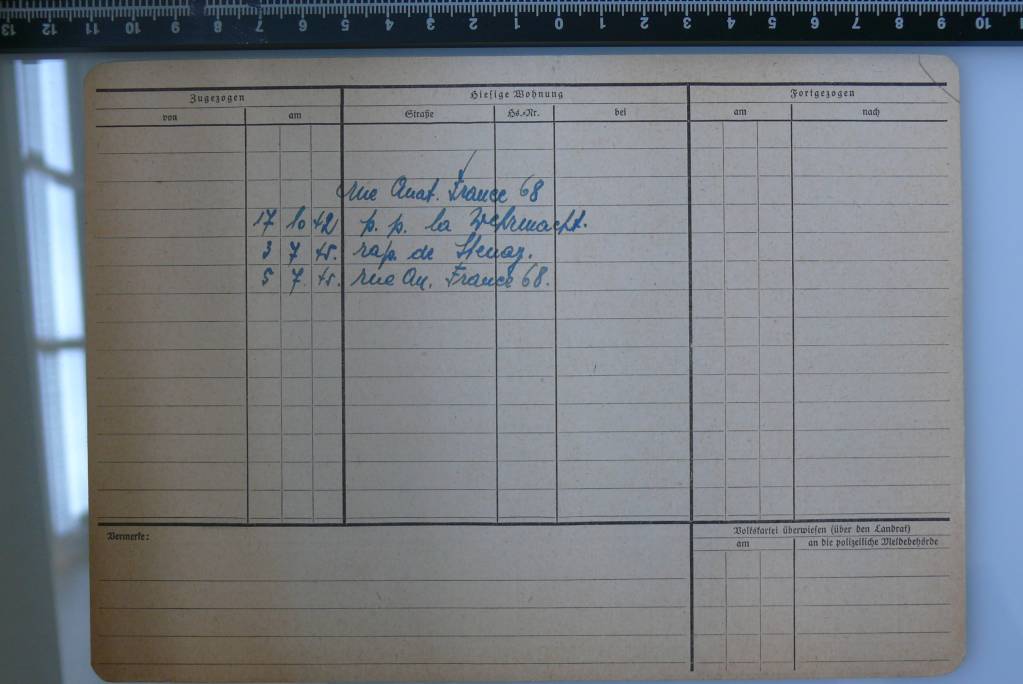 13 12 11 10 9 8 7 6 5 4 3 2 1 0 1 2 3 4 5 6 7 8 9 10
Zugezogen Hiesige Wohnung Fortgezogen
von am Straße Hs.-Nr. bei am nach
rue Anat. France 68
17 10 42 p. p. la Wehrmacht.
3 7 45. rap. de Stenay.
5 7 45. rue An. France 68.
Vermerke: Volkskartei überwiesen (über den Landrat)
am an die polizeiliche Meldebehörde